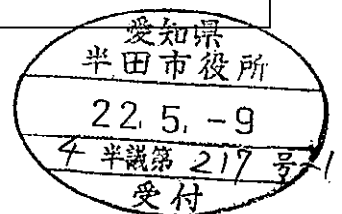 愛知県
半田市役所
22. 5. -9
4半議第217号-1
受付